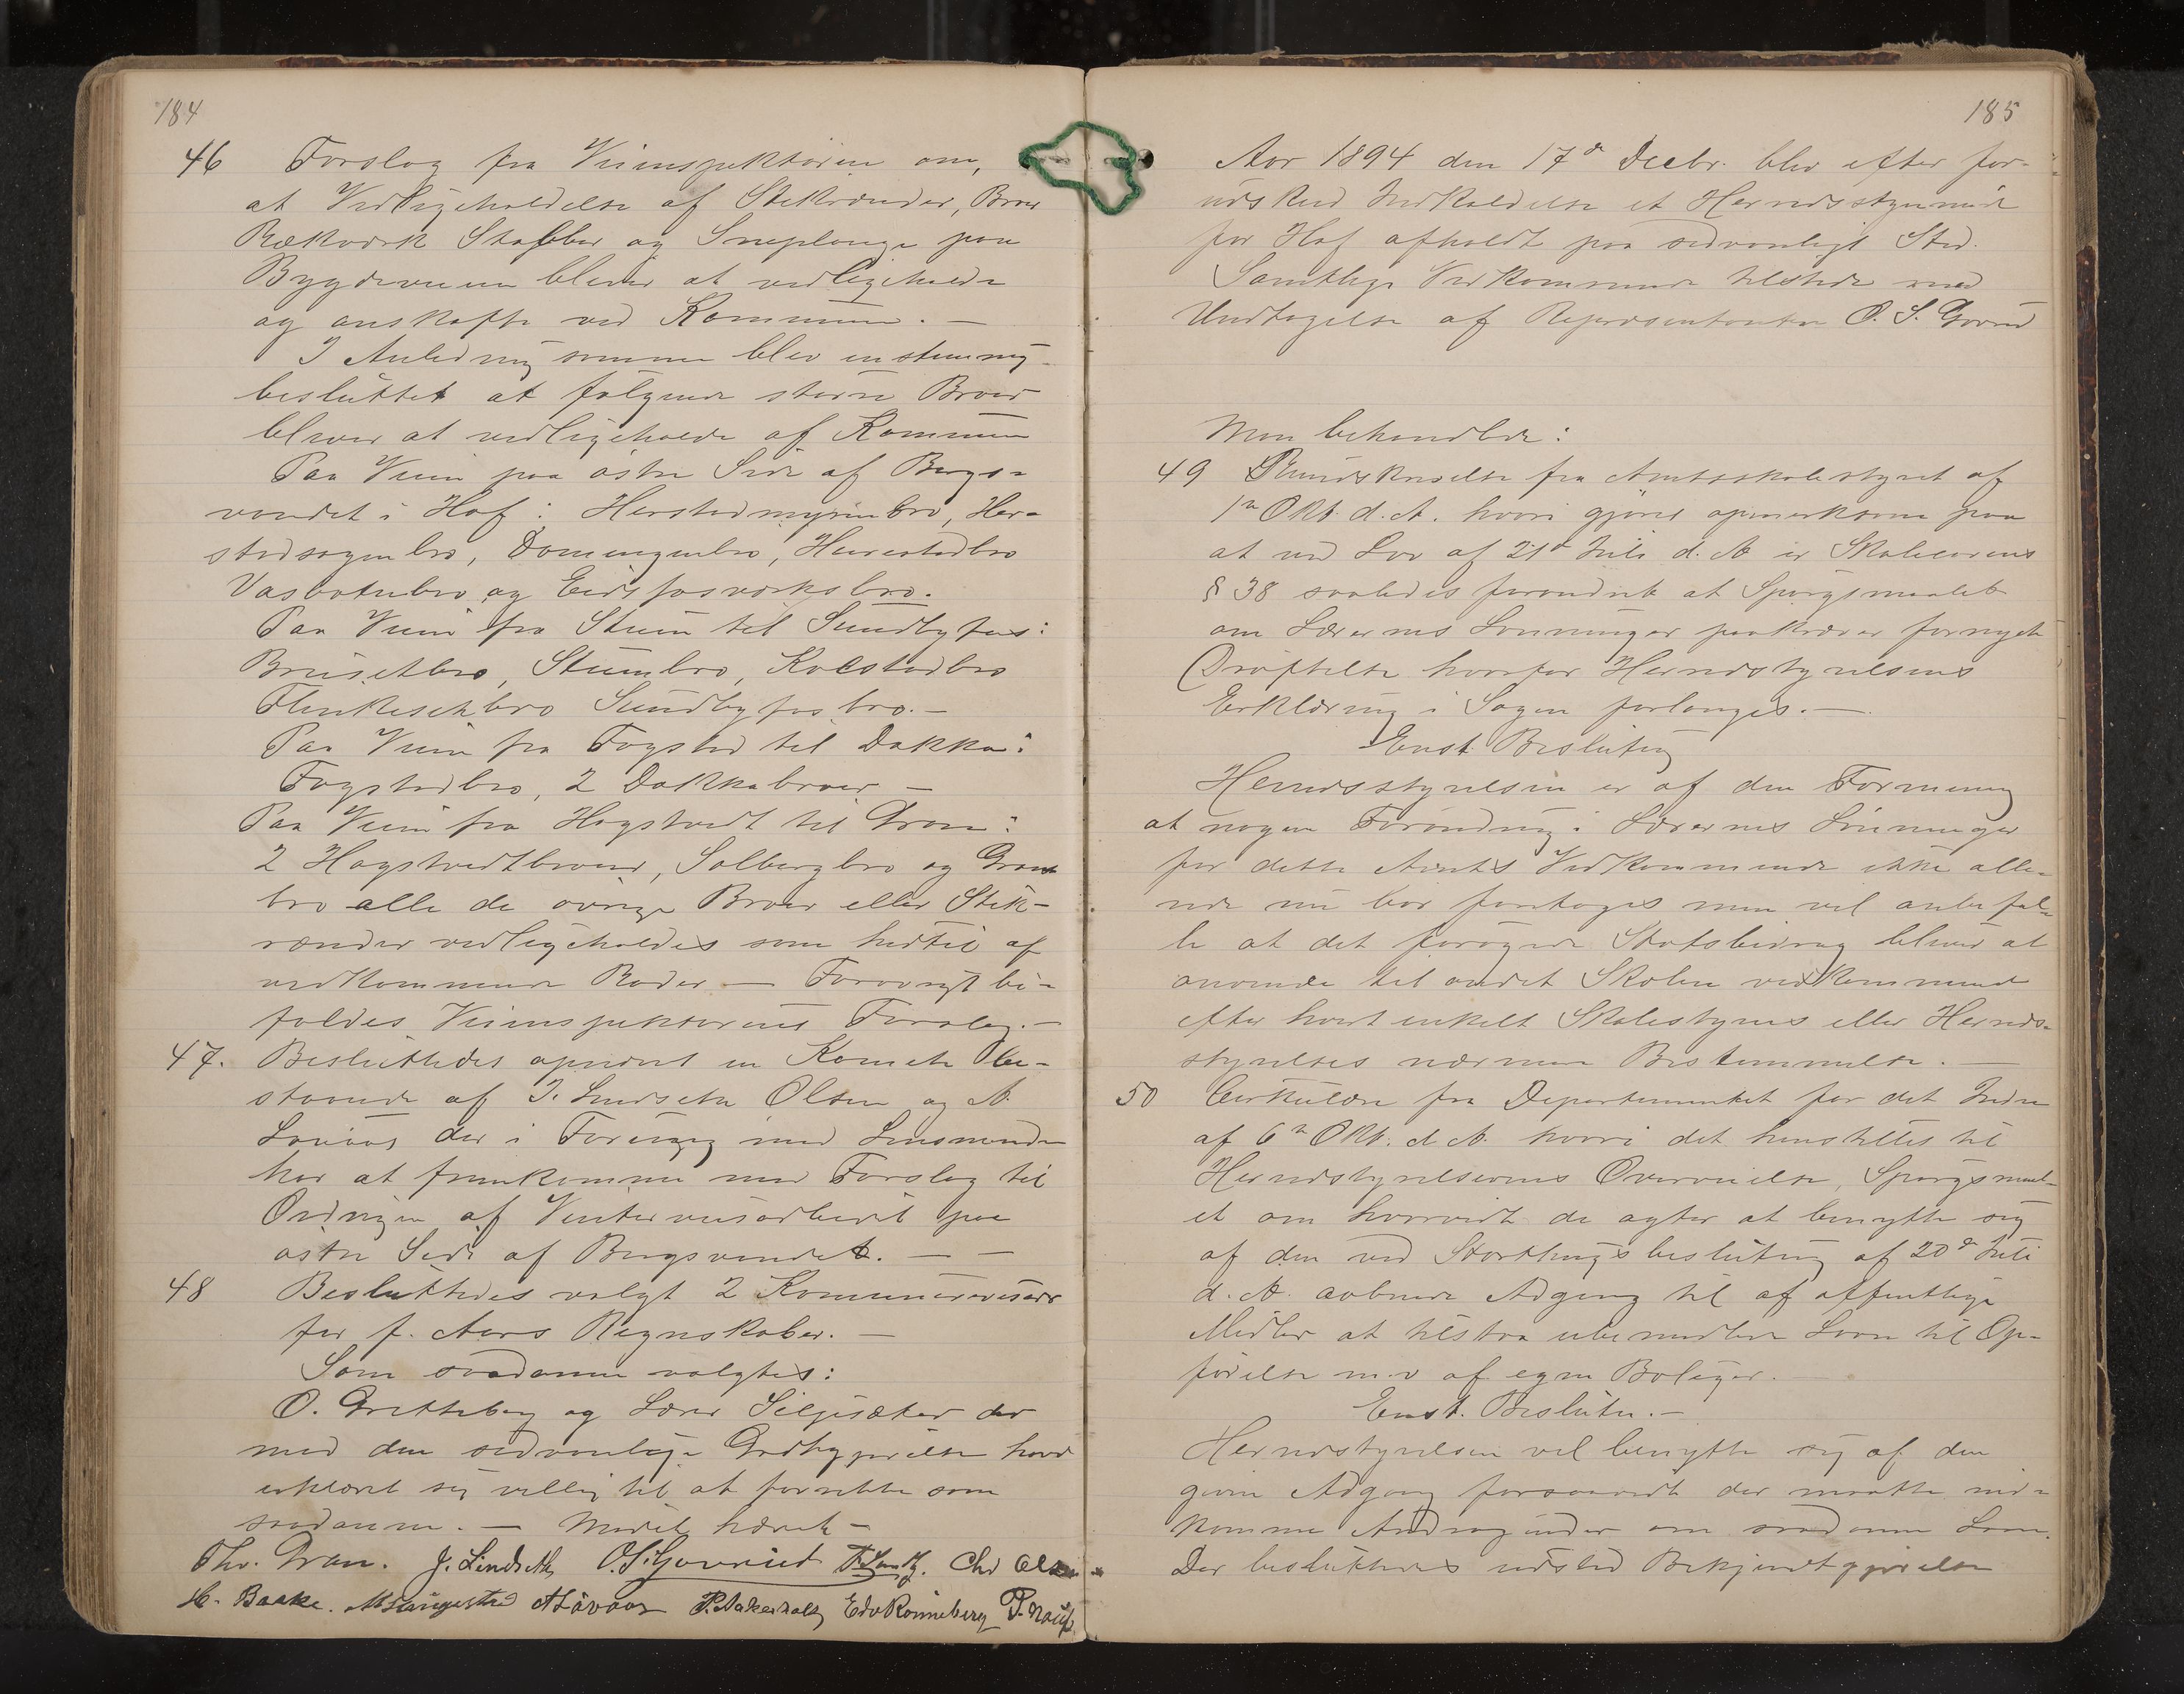 184
46 Forslag fra Veiinspektøren om,
at Vedligeholdelse af Stikrænder, Broer
Rækværk Stabber og Sneplouge paa
Bygdeveiene bliver at vedligeholde
og anskaffe ved Kommunen. —
I Anledning sammen blev enstemmig
besluttet at følgende større Broer
bliver at vedligeholde af Kommunen
Paa Veien paa østre Side af Bergs-
vandet i Hof: Herstadmyrenbro, Her-
stadsagenbro, Domengenbro,
Vasbotnbro og Eidsfosværksbro.
Paa Veien fra Steen til Sundbyfos:
Brusetbro, Steenbro, Kolstadbro
Sundbyfosbro. —
Paa Veien fra Fogstad til Dakka:
Fogstadbro, 2 Dakkabroer —
Paa Veien fra Hagstvedt til Gran:
2 Hagstvedtbroer, Solbergbro og Gran
bro alle de øvrige Broer eller Stik-
rænder vedligeholdes som hidtil af
vedkommende Roder — Forøvrigt bi-
faldes Veiinspektørens Forslag. —
47. Besluttedes opnævnt en Komite be-
staaende af J. Lindseth Olsen og A.
Løvaas der i Forening med Lensmanden
har at fremkomme med Forslag til
Ordningen af Vinterveiarbeidet paa
østre Side af Bergsvandet. — —
48 Besluttedes valgt 2 Kommunerevisorer
for f. Aars Regnskaber. —
Som saadanne valgtes:
O. Gretteberg og Lærer Seljesæter der
med den sædvanlige Godtgjørelse havde
erklæret sig villig til at forrette som
saadanne. — Mødet hævet —
Thv. Gran. J. Lindseth O. S. Gjerried Chr Olsen
H. Bakke. A Løvaas P. Aakerholt Edv Rønneberg
185
Aar 1894 den 17de Decbr. blev efter for-
udskeed Indkaldelse et Herredsstyremøde
for Hof afholdt paa sædvanligt Sted.
Samtlige Vedkommende tilstede med
Undtagelse af Repræsentanten O. S.
Man behandlede:
49 Rundskrivelse fra Amtsskolestyret af
1ste Oktb. d. A. hvori gjøres opmerksom paa
at ved Lov af 21de Juli d. A. er Skolelovens
§ 38 saaledes forandret at Spørgsmaalet
om Lærernes Lønninger paakræver fornyet
Drøftelse hvorfor Herredstyrelsens
Erklæring i Sagen forlanges. —
Enst. Beslutnig
Herredsstyrelsen er af den Formening
at nogen Forandring i Lærernes Lønninger
for dette Amts Vedkommende ikke alle-
rede nu bør foretages men vil anbefal-
le at det forøgede Statsbidrag bliver at
anvende til andet Skolen vedkommende
efter hvert enkelt Skolestyres eller Herreds-
styrelses nærmere Bestemmelse. —
50 Cirkulære fra Departementet for det Indre
af 6te Oktb. d. A. hvori det henstilles til
Herredstyrelsernes Overveielse, Spørgsmaal-
et om hvorvidt de agter at benytte sig
af den ved Storthingsbeslutning af 20de Juli
d. A. aabnede Adgang til af offentlige
Midler at tilstaa ubemidlede Laan til Op-
førelse m.v af egne Boliger. —
Enst. Beslutn. —
Herredstyrelsen vil benytte sig af den
givne Adgang forsaavidt der maatte ind-
komme Andragender om saadanne Laan.
Der besluttedes udsted Bekjendtgjørelse